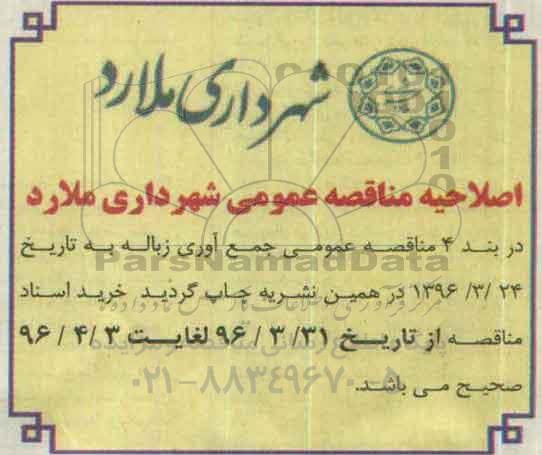 شهرداری ملارد
اصلاحیه مناقصه عمومی شهرداری ملارد
در بند ۴ مناقصه عمومی جمع آوری زباله به تاریخ
۲۴ /۳/ ۱۳۹۶ در همین نشریه چاپ گردید خرید اسناد
مناقصه از تاریخ ۳۱/ ۳ / ۹۶ لغایت ۳ /۴ / ۹۶
صحیح می باشد.
ParsNamadData
۰۲۱-۸۸۳۴۹۶۷۰-۵